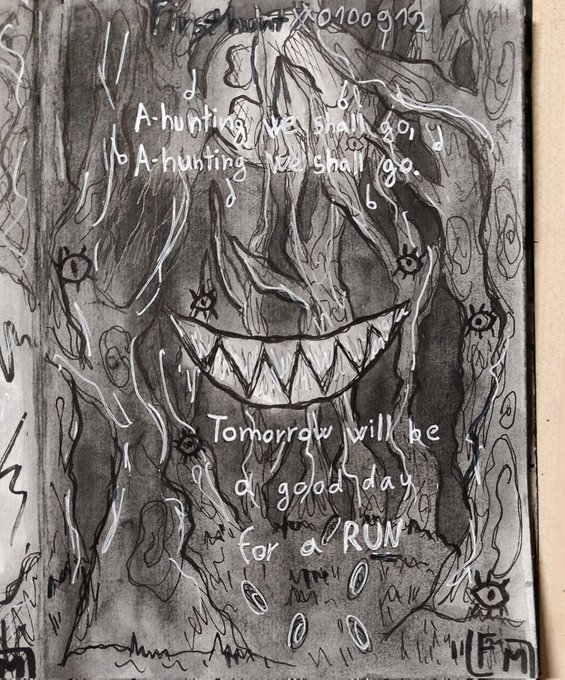 First hunt #0100912
A-hunting we shall go,
A-hunting we shall go.
Tomorrow will be
a good day
for a RUN
FM